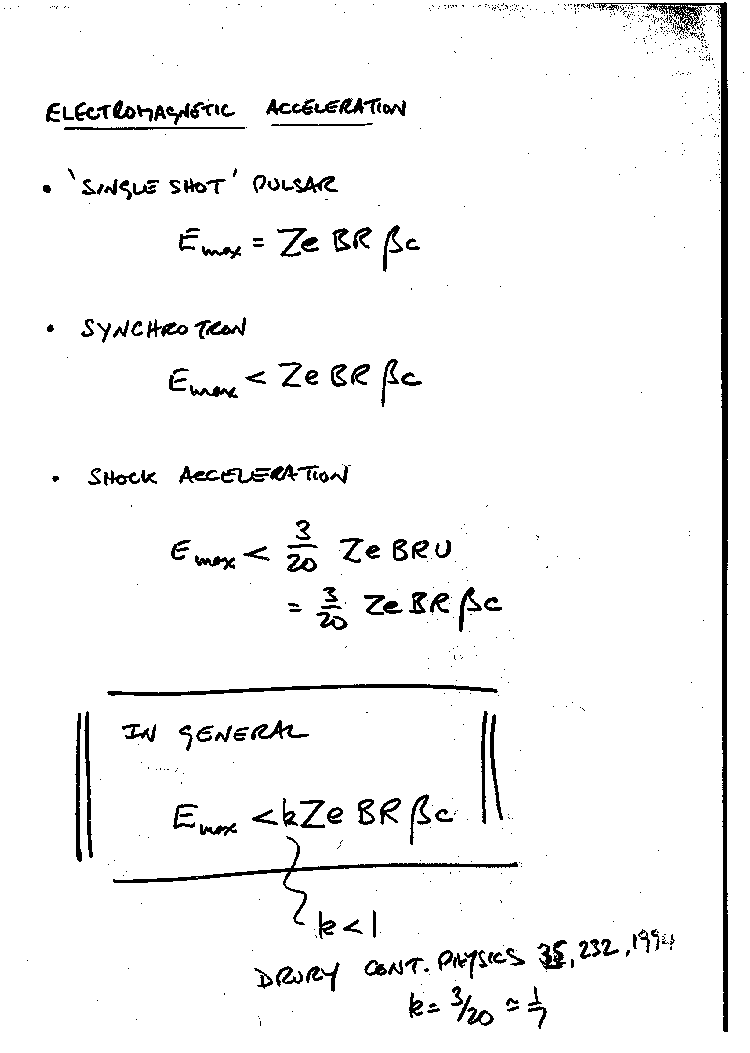 ELECTROMAGNETIC ACCELERATION
• 'SINGLE SHOT' PULSAR
Emax = Ze BR βc
• SYNCHROTRON
Emax < Ze BR βc
• SHOCK ACCELERATION
Emax < 3/20 Ze BRU
= 3/20 Ze BR βc
IN GENERAL
Emax < kZe BR βc
k < 1
DRURY CONT. PHYSICS 35, 232, 1994
k = 3/20 ≃ 1/7